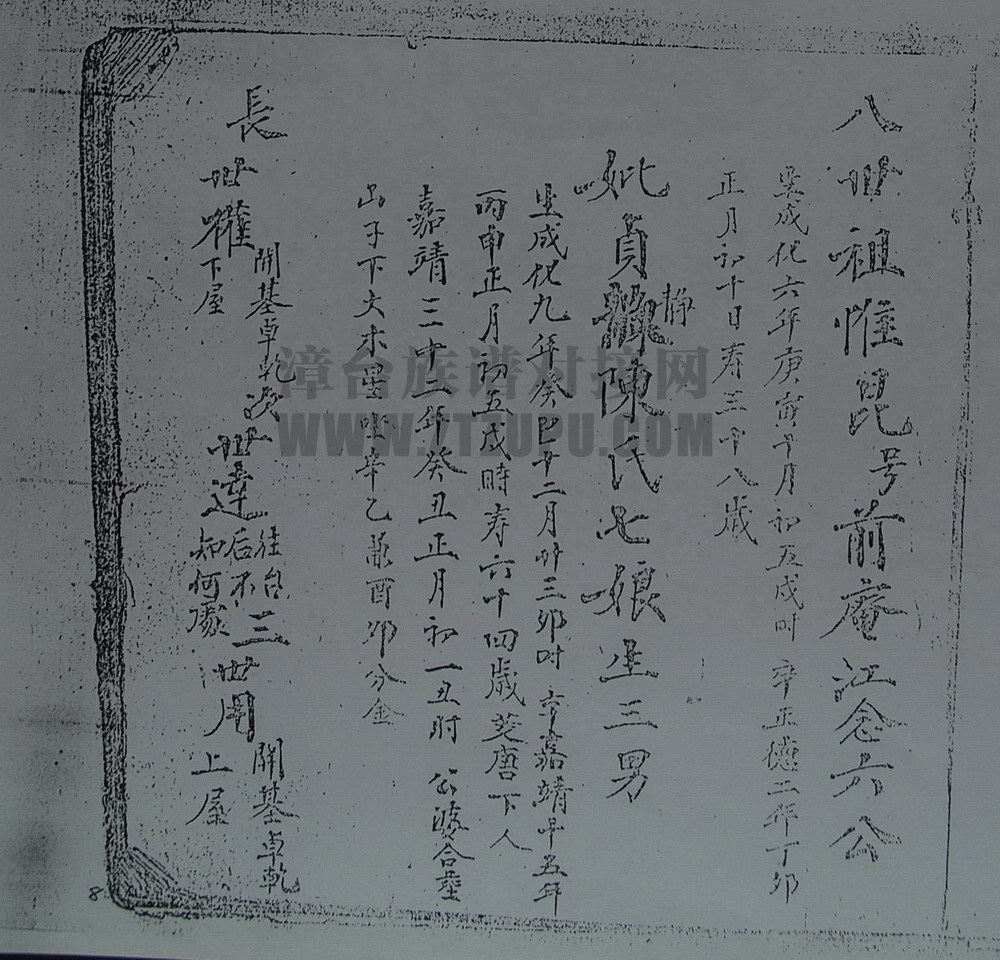 八世祖惟昆号前庵江念六公
生成化六年庚寅十月初五戌时卒正德二年丁卯
正月初十日寿三十八歳
妣貞靜陳氏七娘生三男
生成化九年癸巳十二月廿三卯时卒嘉靖十五年
丙申正月初五戌時寿六十四歳葖唐下人
嘉靖二十二年癸丑正月初一丑时 公婆合塟
山子下文木星坐辛乙兼酉卯分金
長世權開基卓乾下屋 次世達往台后不知何處 三世用開基卓乾上屋
漳台族谱对接网
WWW.ZTZUPU.COM
8